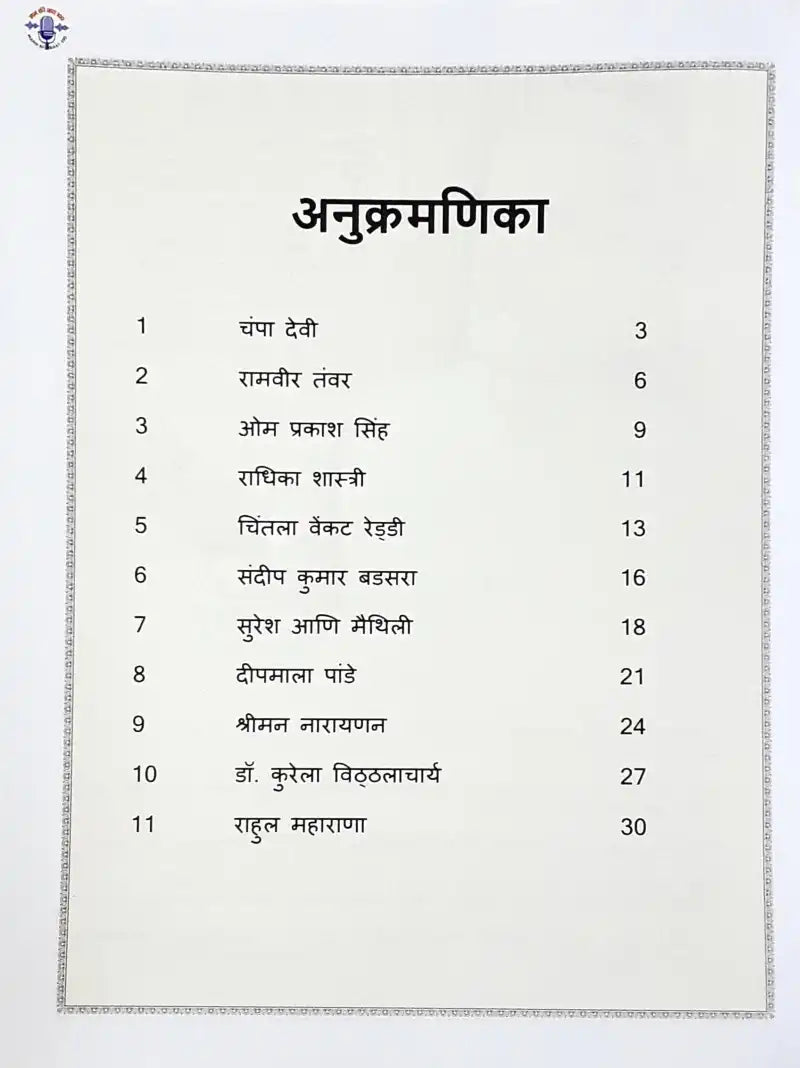 अनुक्रमणिका
1 चंपा देवी 3
2 रामवीर तंवर 6
3 ओम प्रकाश सिंह 9
4 राधिका शास्त्री 11
5 चिंतला वेंकट रेड्डी 13
6 संदीप कुमार बडसरा 16
7 सुरेश आणि मैथिली 18
8 दीपमाला पांडे 21
9 श्रीमन नारायणन 24
10 डॉ. कुरेला विठ्ठलाचार्य 27
11 राहुल महाराणा 30